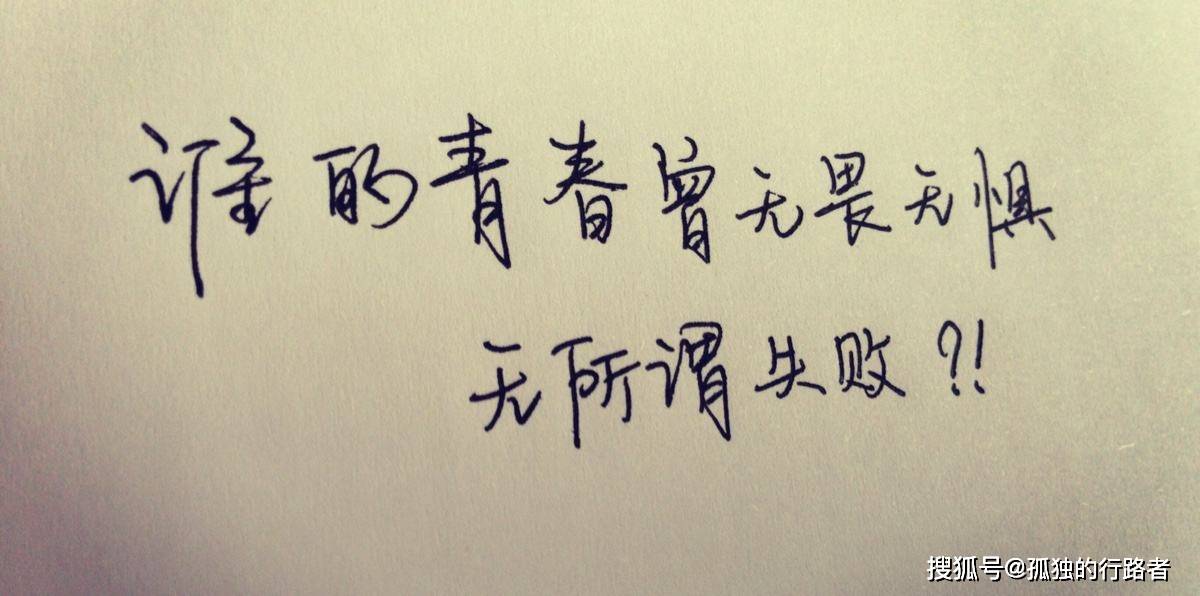 谁的青春曾无畏无惧
无所谓失败?!
搜狐号@孤独的行路者